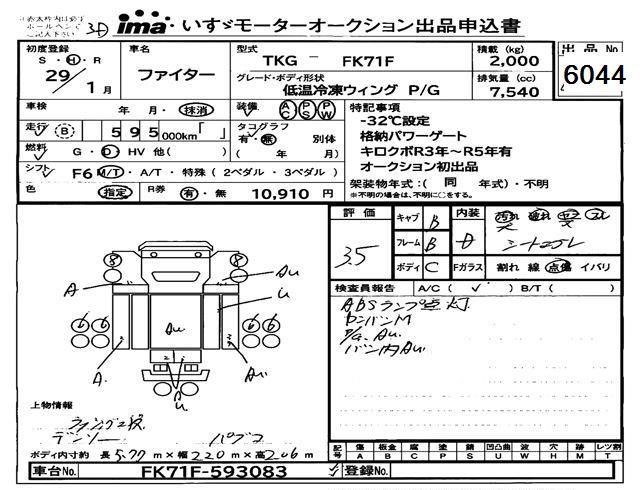 ima いすゞモーターオークション出品申込書
初度登録 車名 型式 TKG - FK71F 積載 (kg) 2,000 出品 No
S・H・R 29/1月 ファイター グレード・ボディ形状 低温冷凍ウィング P/G 排気量 (cc) 7,540 6044
車検 年・月・抹消 装備 AC PS PW 特記事項
-32℃設定
走行 B 595 000km「 」 タコグラフ 有・無 別体 格納パワーゲート
燃料 G・D・HV 他( ) ( 年 / 月) キロクボR3年～R5年有
シフト F6 M/T・A/T・特殊 (2ペダル・3ペダル) オークション初出品
色 指定 R券 有・無 10,910 円 架装物年式:( 同 年式)・不明
※不明の場合は、不明に○をする。
評価 3.5 キャブ B 内装 D
フレーム B シートコゲ
ボディ C Fガラス 割れ 線 点傷 イバリ
検査員報告 A/C( ✓ ) B/T( )
ABSランプ点灯
P/G.Au.
バン内Au
A Au
U
Au
A. Au
U
上物情報
ウィング2枚
デンソー パブコ
ボディ内寸約 長5.77m×幅2.20m×高2.06m
記号 傷 A 板金 B 腐 C 塗 P 錆 S 凹凸曲 U 波 W 穴 H 跡 M レツ割 T
車台No. FK71F-593083 登録No.